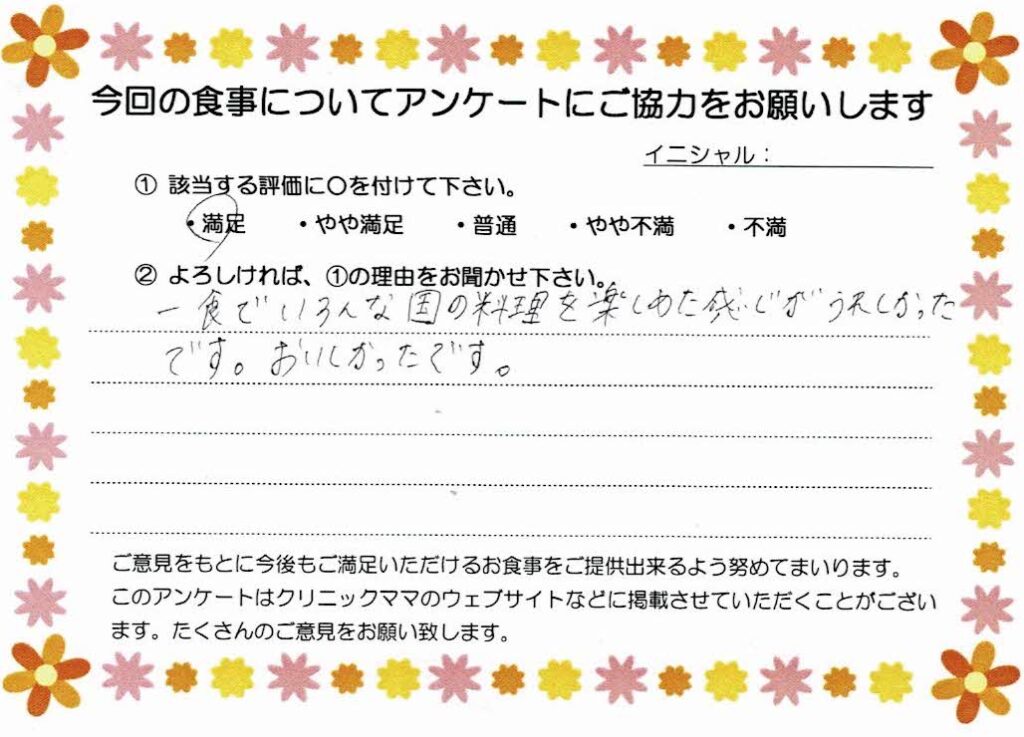 今回の食事についてアンケートにご協力をお願いします
イニシャル：
① 該当する評価に○を付けて下さい。
・満足 ・やや満足 ・普通 ・やや不満 ・不満
② よろしければ、①の理由をお聞かせ下さい。
一食でいろんな国の料理を楽しめた感じがうれしかった
です。おいしかったです。
ご意見をもとに今後もご満足いただけるお食事をご提供出来るよう努めてまいります。
このアンケートはクリニックママのウェブサイトなどに掲載させていただくことがござい
ます。たくさんのご意見をお願い致します。